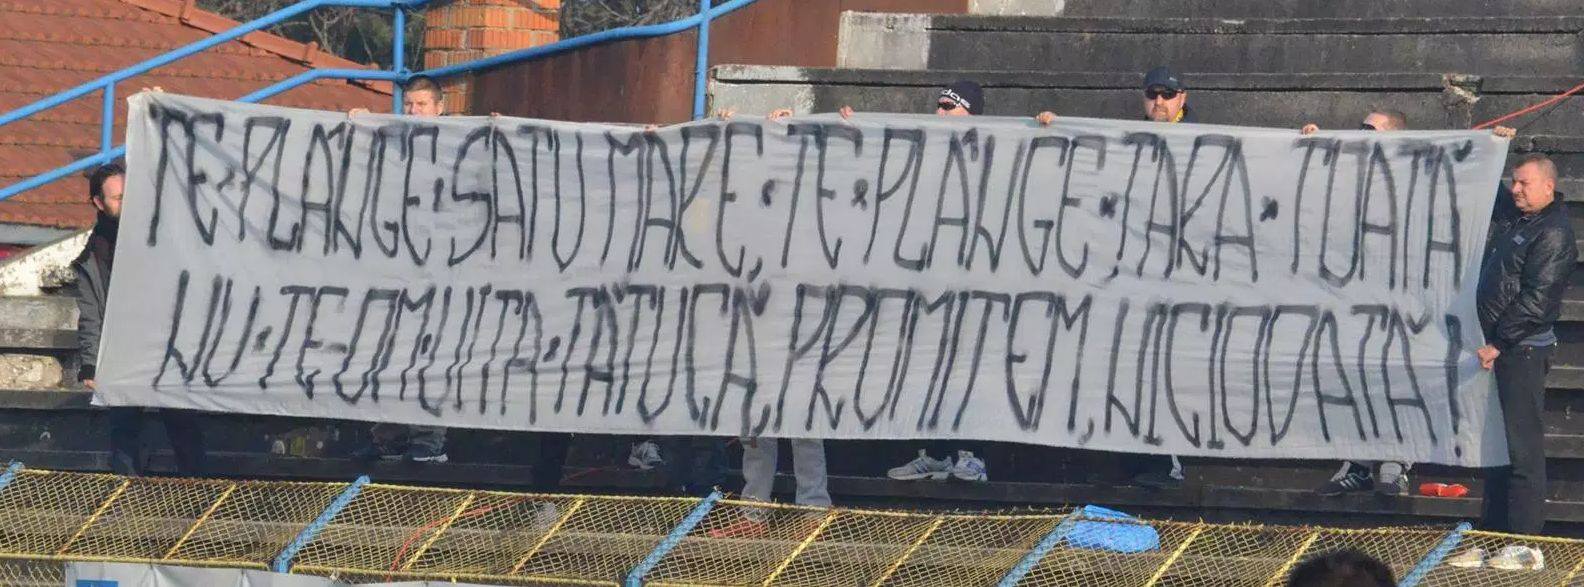 TE·PLÂNGE·SATU MARE,·TE·PLÂNGE·ȚARA·TOATĂ
NU·TE-OM·UITA·TĂTUCĂ, PROMITEM, NICIODATĂ!
adidas